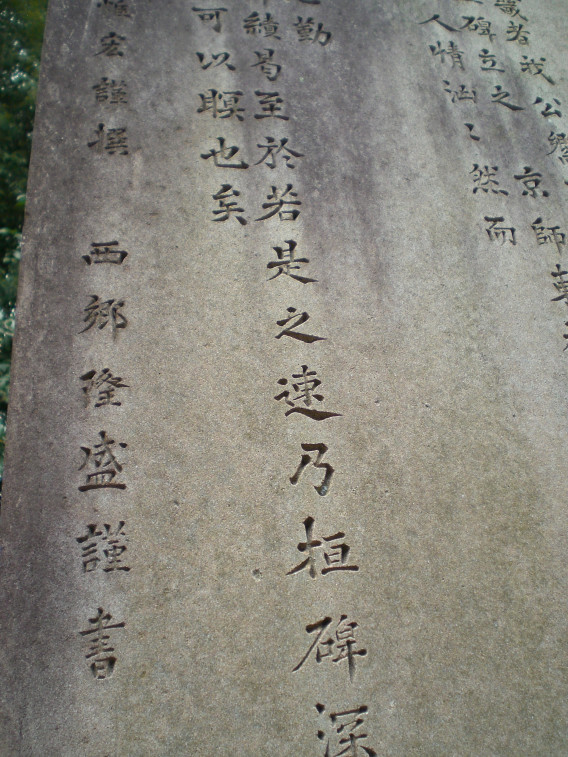 若我公
碑立之京師
人情洶〻然而
勤
績曷至於若是之速乃桓碑深
可以瞑也矣
宏謹撰 西郷隆盛謹書